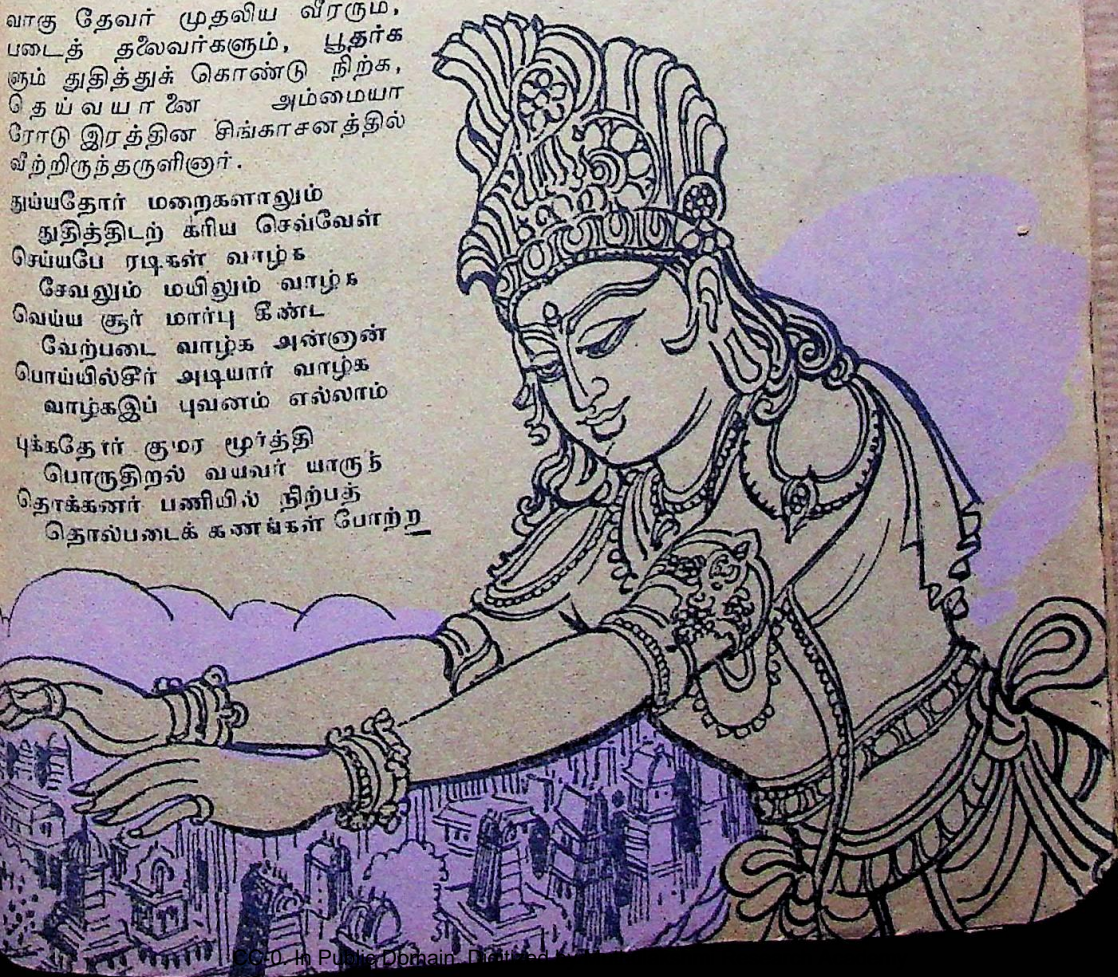 வாகு தேவர் முதலிய வீரரும்,
படைத் தலைவர்களும், பூதர்க
ளும் துதித்துக் கொண்டு நிற்க,
தெய்வயானை அம்மையா
ரோடு இரத்தின சிங்காசனத்தில்
வீற்றிருந்தருளினார்.
துய்யதோர் மறைகளாலும்
துதித்திடற் கரிய செவ்வேள்
செய்யபே ரடிகள் வாழ்க
சேவலும் மயிலும் வாழ்க
வெய்ய சூர் மார்பு கீண்ட
வேற்படை வாழ்க அன்னான்
பொய்யில்சீர் அடியார் வாழ்க
வாழ்கஇப் புவனம் எல்லாம்
புக்கதோர் குமர மூர்த்தி
பொருதிறல் வயவர் யாருந்
தொக்கனர் பணியில் நிற்பத்
தொல்படைக் கணங்கள் போற்ற
CC-0. In Public Domain. Digitized by